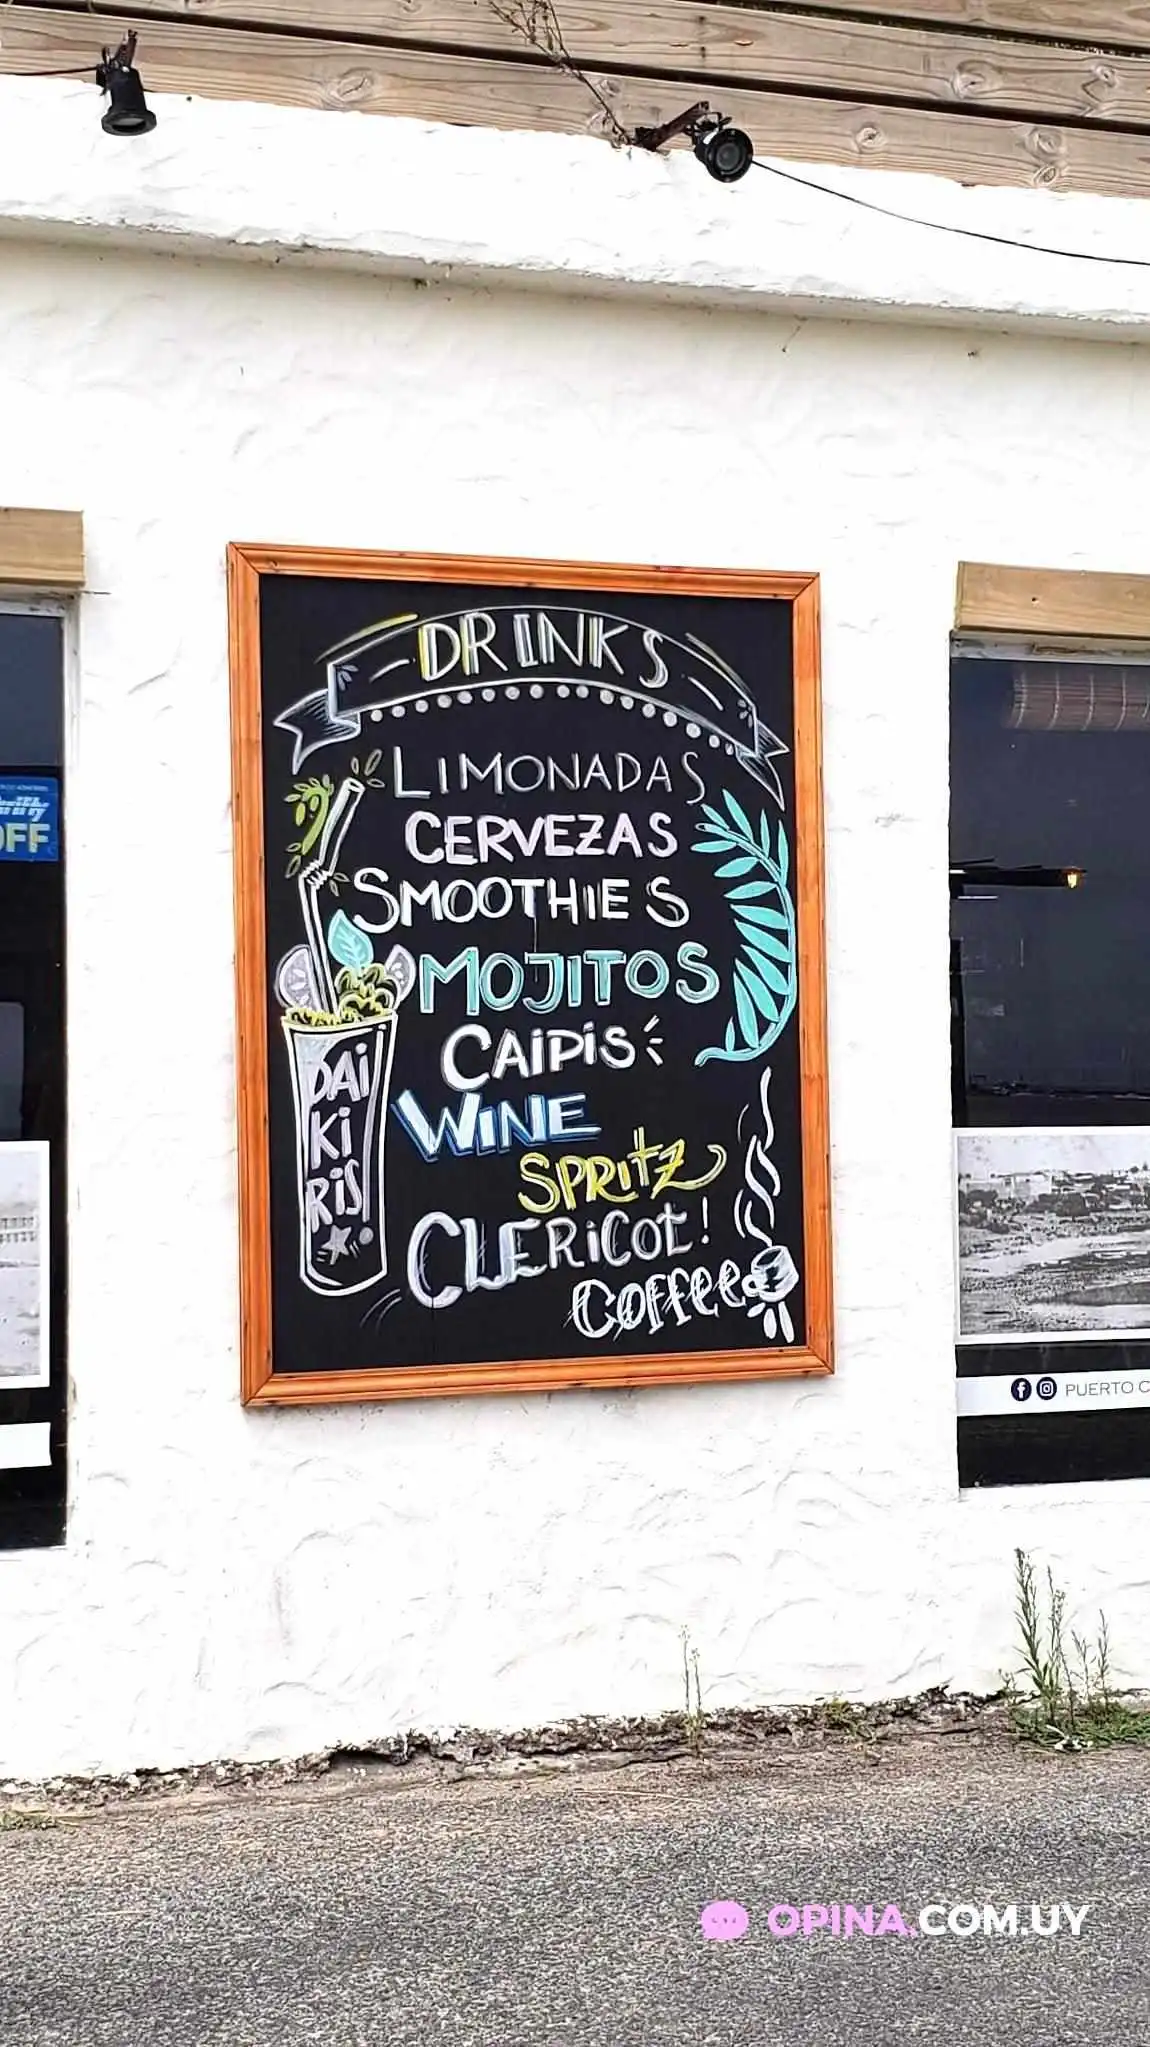 DRINKS
LIMONADAS
CERVEZAS
SMOOTHIES
MOJITOS
CAIPIS
WINE
SPRITZ
CLERICOT!
COFFEE
DAI
KI
RIS
OFF
PUERTO C
OPINA.COM.UY